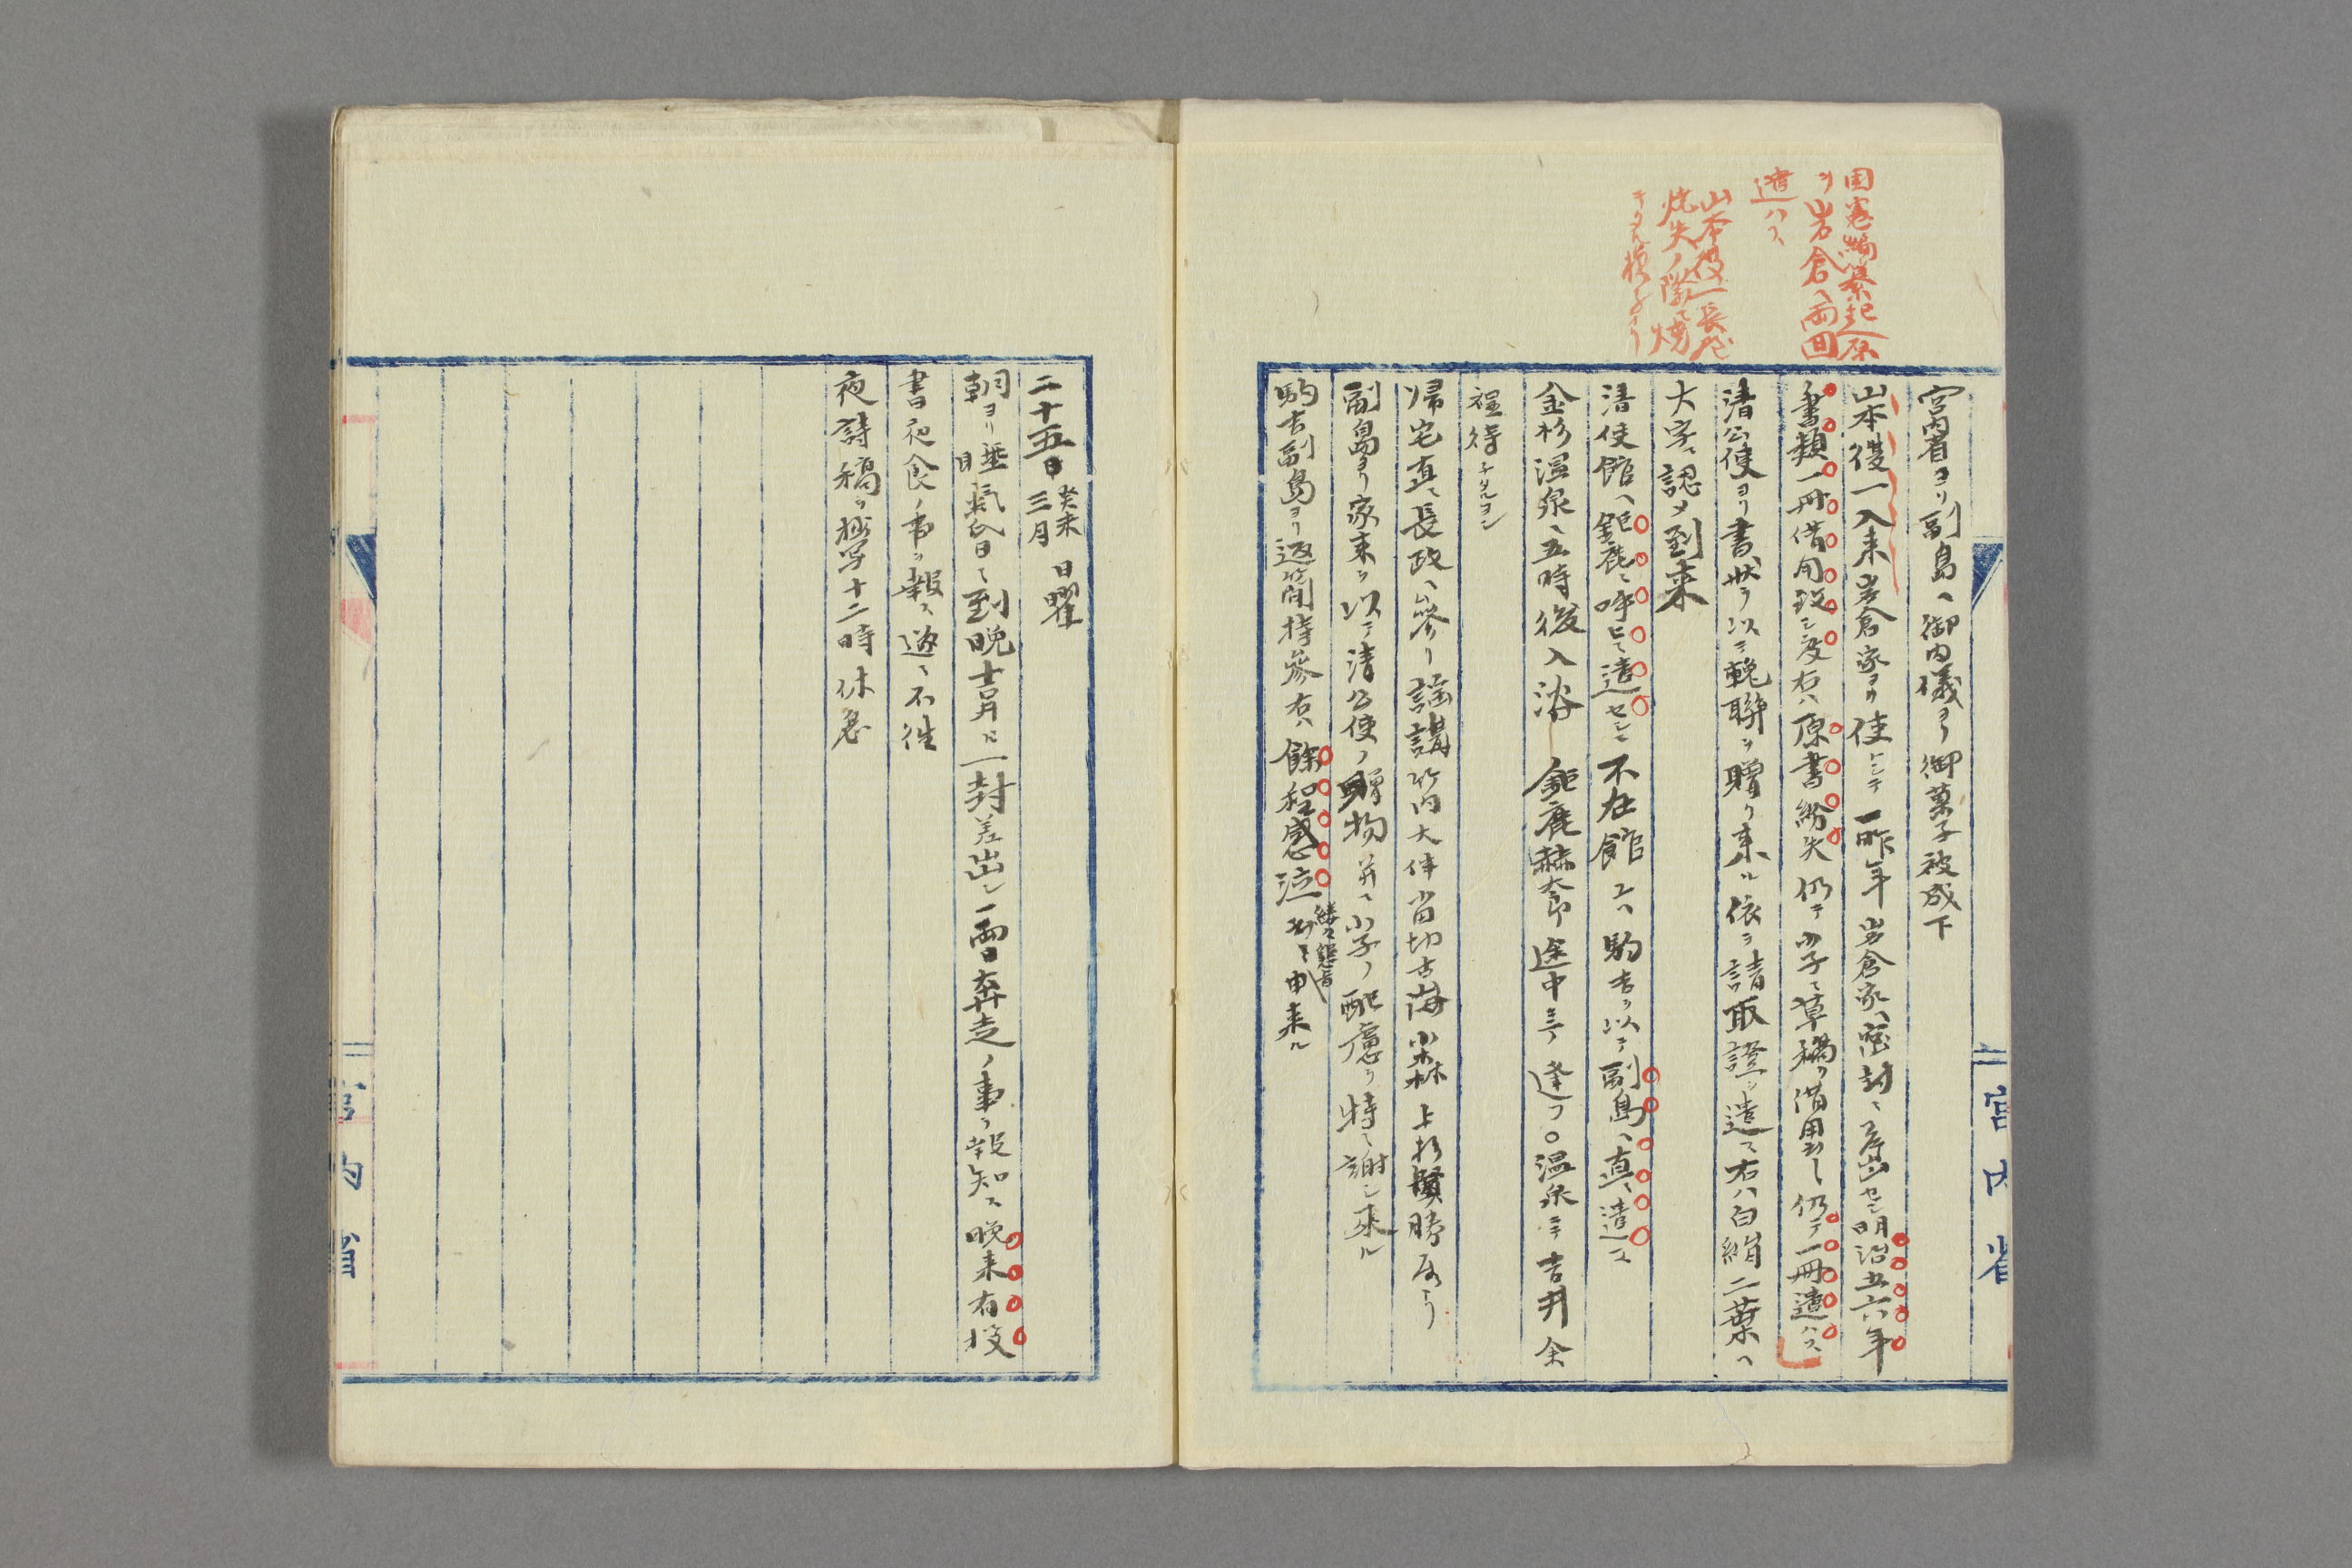 国憲編纂起原
ヲ岩倉ヘ両回
遣ハス
山本復一長屋
焼失ノ際ニ焼
キタル様子ナリ
宮内省ヨリ副島ヘ御内儀ヨリ御菓子被成下
山本復一入来岩倉家ヨリ使トシテ一昨年岩倉家ヘ密封ニテ差出セシ明治五六年
書類一冊借用致シ度右ハ原書紛失仍テ小子ニ草稿ヲ借用 仍テ一冊遣ハス
清公使ヨリ書状ヲ以テ輓聯ヲ贈リ来ル依テ請取證ヲ遣ス右ハ白絹二葉ヘ
大字ニ認メ到来
清使館ヘ鉅鹿ニ呼ヒニ遣セシニ不在館 駒吉ヲ以テ副島ヘ直ニ遣ス
金杉温泉ヘ五時後入浴 鉅鹿赫太郎途中ニテ逢フ○温泉ニテ吉井余
程待チタルヨシ
帰宅直ニ長政ヘ参リ謡講竹内大伴当切古海小森上杉賢勝居ル
副島ヨリ家来ヲ以テ清公使ノ贈物并ニ小子ノ配慮ヲ特ニ謝シ来ル
駒吉副島ヨリ返簡持参右ハ餘程感泣 申来ル
二十五日 癸未三月 日曜
朝ヨリ睡気日ニ到晩吉井ニ一封差出シ一両日奔走ノ事ヲ報知ス晩来有投
書夜食ノ事ヲ報ス遂ニ不往
夜詩稿ヲ抄写十二時休息
宮内省
宮内省